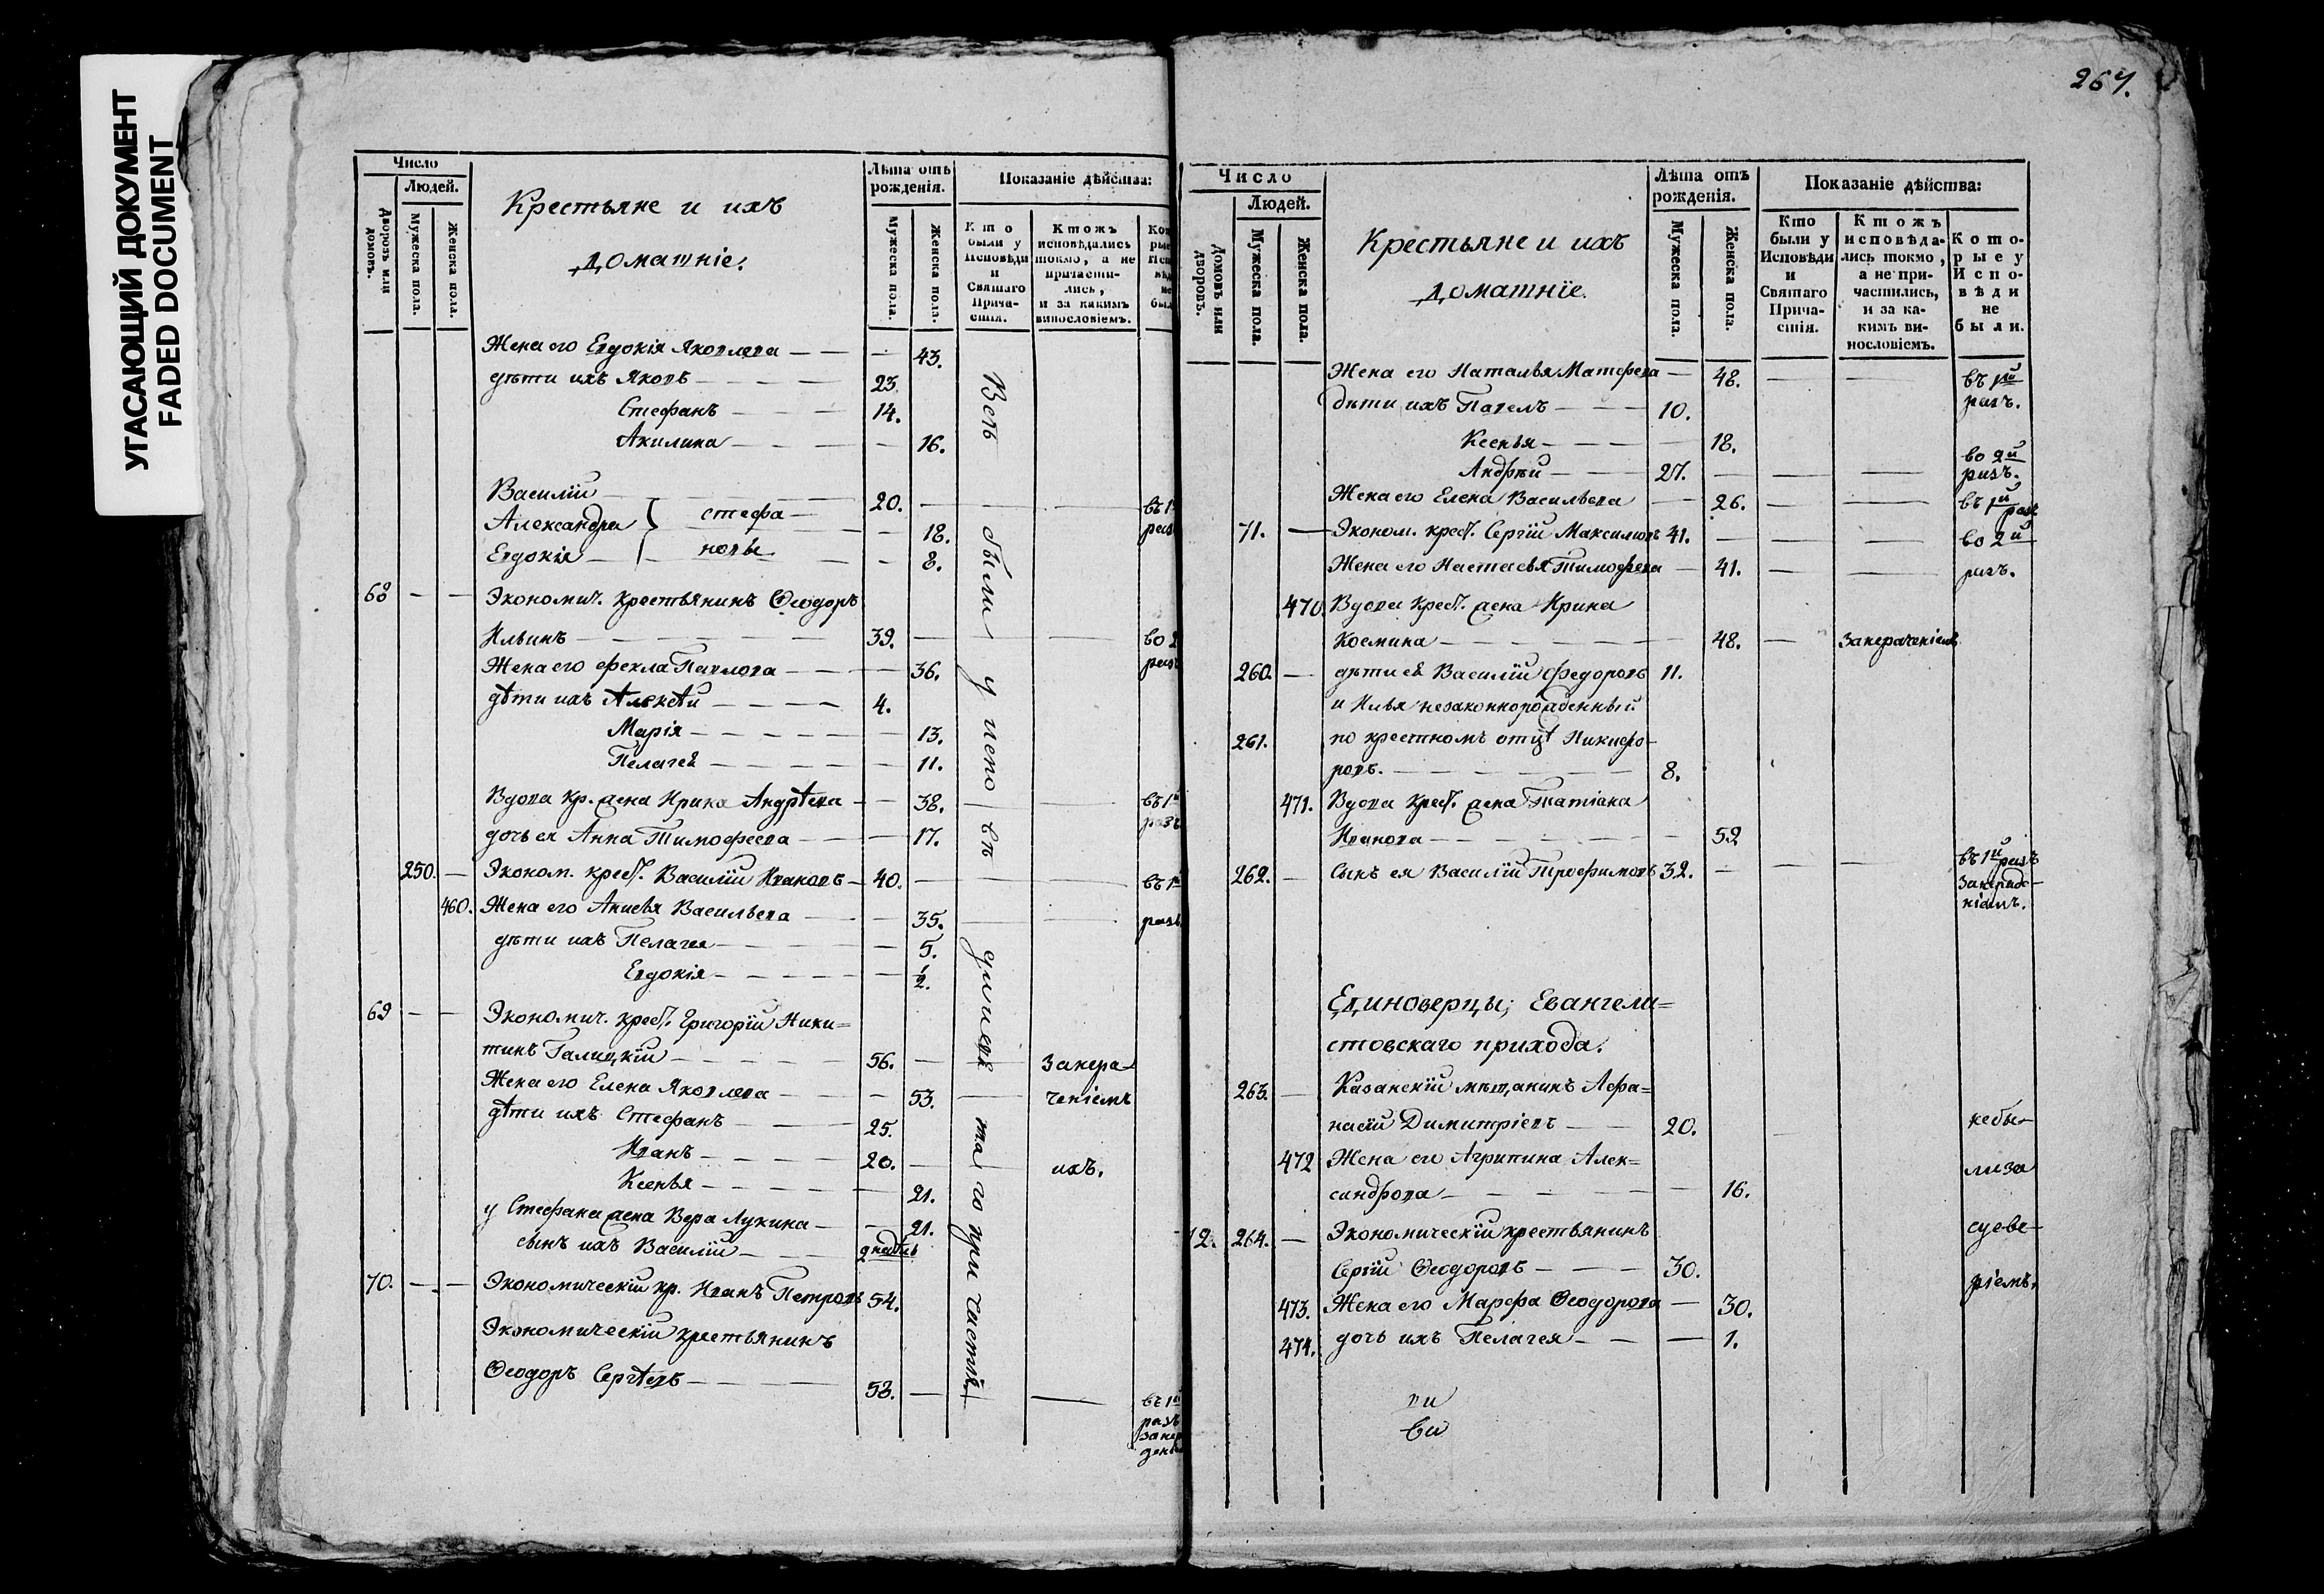 УГАСАЮЩИЙ ДОКУМЕНТ
FADED DOCUMENT
Число
Людей.
Дворовъ или домовъ.
Мужеска пола.
Женска пола.
Крестьяне и ихъ
домашніе.
Лѣта отъ рожденія.
Мужеска пола.
Женска пола.
Показаніе дѣйства:
Кто были у Исповѣди и Святаго Прича-стія.
Ктожъ исповѣдались токмо, а не причасти-лись, и за какимъ винословіемъ.
Жена его Евдокія Яковлева — — — 43.
дѣти ихъ Яковъ — — — — 23.
Стефанъ — — — 14.
Акилина — — — — 16.
Василій — — — 20. — — — въ 1
Александра } стефа— — 18. раз
Евдокія — новы — 8.
68 — — Экономич. крестьянинъ Ѳеодоръ
Ильинъ — — — — 39. — — во 2
Жена его Фекла Павлова — — — 36. раз
дѣти ихъ Алексѣй — — — — 4.
Марія — — — — — 13.
Пелагея — — — — — 11.
Вдова кр. жена Ирина Андрѣева — — 38. — въ 1й
дочь ея Анна Тимофеева — — 17. разъ
250. — Эконом. крест. Василій Ивановъ — 40. — — въ 1й
460. Жена его Анисья Васильева — — 35. — — разъ
дѣти ихъ Пелагея — — — — 5.
Евдокія — — — — — 1/2.
69 — — Экономич. крест. Григорій Ники=
тинъ Галицкій — — — — 56. — Занера—
Жена его Елена Яковлева — — — 53. — ченіемъ
дѣти ихъ Стефанъ — — — 25.
Иванъ — — — — 20. — ихъ.
Ксенья — — — — — 21.
у Стефана жена Вера Лукина — — 21.
сынъ ихъ Василій — —
70. — — Экономическій кр. Иванъ Петровъ 54.
Экономическій крестьянинъ
Ѳеодоръ Сергѣевъ — — — 53. — — въ 1й
разъ
Всѣ были у исповѣди
267.
Число
Людей.
Домовъ или дворовъ.
Мужеска пола.
Женска пола.
Крестьяне и ихъ
домашніе.
Лѣта отъ рожденія.
Мужеска пола.
Женска пола.
Показаніе дѣйства:
Кто были у Исповѣди и Святаго Прича-стія.
Ктожъ исповѣда-лись токмо, а не при-частились, и за ка-кимъ ви-нословіемъ.
Кото-рые у Испо-вѣди не были.
Жена его Наталья Матфеева — 48. — — въ 1й
дѣти ихъ Павелъ — — — 10. разъ.
Ксенья — — — — 18.
во 2й
Андрѣй — — — 27. — — — разъ.
Жена его Елена Васильева — 26. — — въ 1й разъ
71. — Эконом. крест. Сергій Максимовъ 41. — — — во 2й
Жена его Настасья Тимофеева — 41. — — разъ.
470. Вдова крест. жена Ирина
Космина — — — — — 48. — Занераченіемъ
260. — дѣти ея Василій Федоровъ 11.
и Илья незаконнорожденный
261. по крестномъ отцѣ Никифо-
ровъ. — — — — — 8.
471. Вдова крест. жена Татіана
Иванова — — — — — 52
262. — сынъ ея Василій Трофимовъ 32. — — — въ 1й разъ
Единоверцы; Евангели=
стовскаго прихода.
263. — Казанскій мѣщанинъ Афа=
насій Димитріевъ — — 20. — небы—
472 Жена его Агрипина Алек=
ли за
сандрова — — — — — 16.
72. 264. — Экономическій крестьянинъ суеве—
Сергій Ѳеодоровъ — — — 30. ріемъ.
473. Жена его Марфа Ѳеодорова — 30.
474. дочь ихъ Пелагея — — — 1.